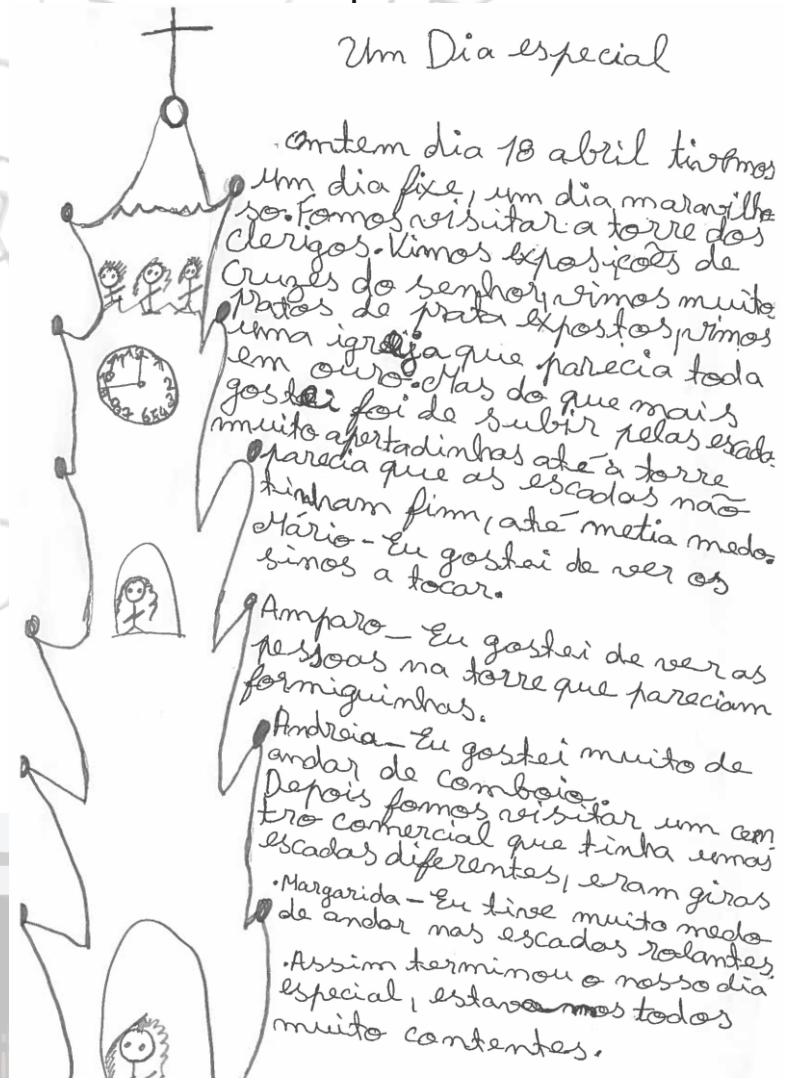 Um Dia especial
.ontem dia 18 abril tivemos
um dia fixe, um dia maravilho
so. Fomos visitar a torre dos
clerigos. Vimos exposições de
cruzes do senhor, vimos muito
pratos de prata expostos, vimos
uma igreija que parecia toda
em ouro. Mas do que mais
gostei foi de subir pelas escada
muito apertadinhas até à torre
parecia que as escadas não
tinham fim, até metia medo.
Mário - Eu gostei de ver os
sinos a tocar.
Amparo - Eu gostei de ver as
pessoas na torre que pareciam
formiguinhas.
Andreia - Eu gostei muito de
andar de comboio.
Depois fomos visitar um cen
tro comercial que tinha umas
escadas diferentes, eram giras
.Margarida - Eu tive muito medo
de andar nas escadas rolantes.
.Assim terminou o nosso dia
especial, estavamos todos
muito contentes.